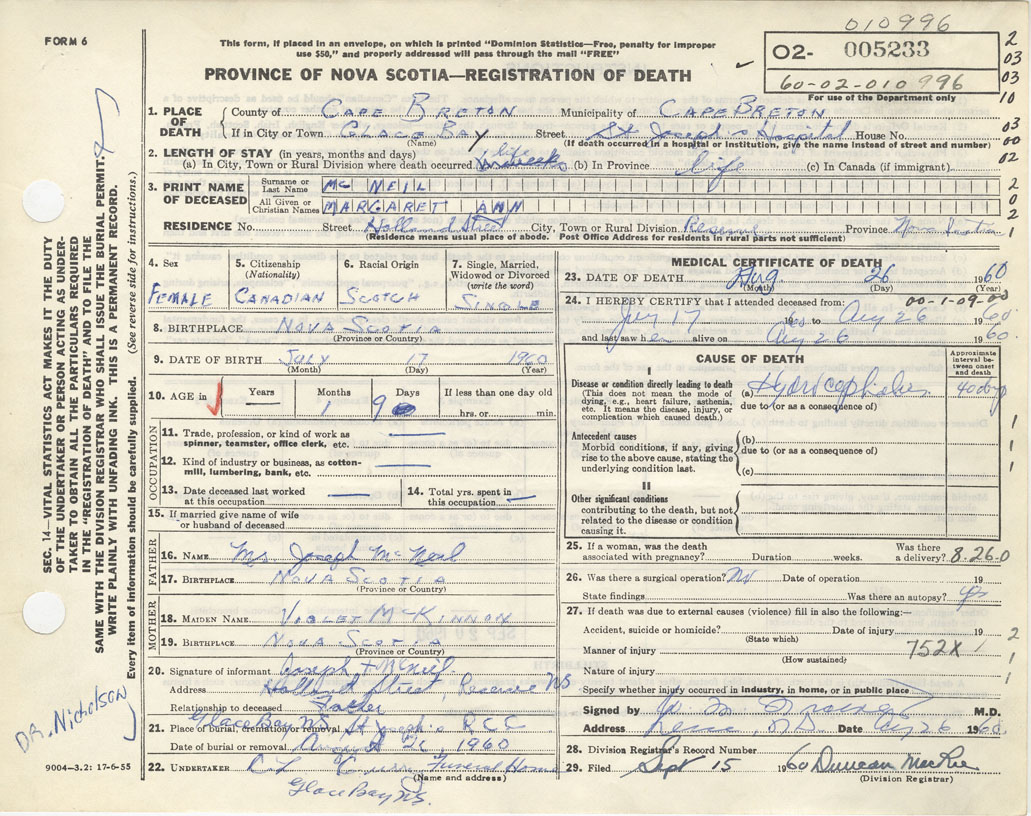 010996
FORM 6
This form, if placed in an envelope, on which is printed "Dominion Statistics—Free, penalty for improper
use $50," and properly addressed will pass through the mail "FREE"
PROVINCE OF NOVA SCOTIA—REGISTRATION OF DEATH
02- 005233
60-02-010996
For use of the Department only
2
03
03
10
03
00
02
2
0
2
1
1. PLACE OF DEATH
County of CAPE BRETON Municipality of CAPE BRETON
If in City or Town GLACE BAY Street St Joseph's Hospital House No.
(Name) (If death occurred in a hospital or institution, give the name instead of street and number)
2. LENGTH OF STAY (in years, months and days)
(a) In City, Town or Rural Division where death occurred life (b) In Province life (c) In Canada (if immigrant)
3. PRINT NAME OF DECEASED
Surname or Last Name MC NEIL
All Given or Christian Names MARGARET ANN
RESIDENCE No. Street Holland Street City, Town or Rural Division Reserve Province Nova Scotia
(Residence means usual place of abode. Post Office Address for residents in rural parts not sufficient)
4. Sex
FEMALE
5. Citizenship
(Nationality)
CANADIAN
6. Racial Origin
SCOTCH
7. Single, Married,
Widowed or Divorced
(write the word)
SINGLE
8. BIRTHPLACE NOVA SCOTIA
(Province or Country)
9. DATE OF BIRTH JULY 17 1960
(Month) (Day) (Year)
10. AGE in Years Months Days If less than one day
1 9 hrs. or min.
OCCUPATION
11. Trade, profession, or kind of work as
spinner, teamster, office clerk, etc.
12. Kind of industry or business, as cotton-
mill, lumbering, bank, etc.
13. Date deceased last worked
at this occupation
14. Total yrs. spent in
this occupation
15. If married give name of wife
or husband of deceased
FATHER
16. NAME Mr Joseph McNeil
17. BIRTHPLACE NOVA SCOTIA
(Province or Country)
MOTHER
18. MAIDEN NAME VIOLET MCKINNON
19. BIRTHPLACE NOVA SCOTIA
(Province or Country)
20. Signature of informant Joseph McNeil
Address Holland Street, Reserve NS
Relationship to deceased Father
21. Place of burial, cremation or removal Glace Bay NS St Joseph's RCC
Date of burial or removal August 26, 1960
22. UNDERTAKER Funeral Home
(Name and address)
Glace Bay NS.
MEDICAL CERTIFICATE OF DEATH
23. DATE OF DEATH Aug 26 1960
(Month) (Day) (Year)
24. I HEREBY CERTIFY that I attended deceased from: 00-1-09-00
July 17 1960 to Aug 26 1960
and last saw her alive on Aug 26 1960.
CAUSE OF DEATH
Approximate interval between onset and death
I
Disease or condition directly leading to death
(This does not mean the mode of
dying, e.g., heart failure, asthenia,
etc. It means the disease, injury, or
complication which caused death.)
(a) 40 days
due to (or as a consequence of)
Antecedent causes
Morbid conditions, if any, giving
rise to the above cause, stating the
underlying condition last.
(b)
due to (or as a consequence of)
(c)
II
Other significant conditions
contributing to the death, but not
related to the disease or condition
causing it.
1
1
1
25. If a woman, was the death
associated with pregnancy? Duration weeks. Was there
a delivery? 8.26.0
26. Was there a surgical operation? No Date of operation 19
State findings Was there an autopsy? yes
27. If death was due to external causes (violence) fill in also the following:—
Accident, suicide or homicide? Date of injury 19
(State which)
Manner of injury 752X
(How sustained)
Nature of injury
2
1
1
Specify whether injury occurred in industry, in home, or in public place
Signed by M.D.
Address Date Aug 26 1960.
28. Division Registrar's Record Number
29. Filed Sept 15 1960 Duncan MacRae
(Division Registrar)
SEC. 14—VITAL STATISTICS ACT MAKES IT THE DUTY
OF THE UNDERTAKER OR PERSON ACTING AS UNDER-
TAKER TO OBTAIN ALL THE PARTICULARS REQUIRED
IN THE "REGISTRATION OF DEATH" AND TO FILE THE
SAME WITH THE DIVISION REGISTRAR WHO SHALL ISSUE THE BURIAL PERMIT.
WRITE PLAINLY WITH UNFADING INK. THIS IS A PERMANENT RECORD.
Every item of information should be carefully supplied. (See reverse side for instructions.)
DR. Nicholson
9004—3.2: 17-6-55